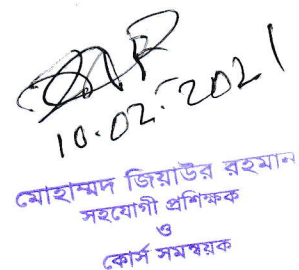 10.02.2021
মোহাম্মদ জিয়াউর রহমান
সহযোগী প্রশিক্ষক
ও
কোর্স সমন্বয়ক